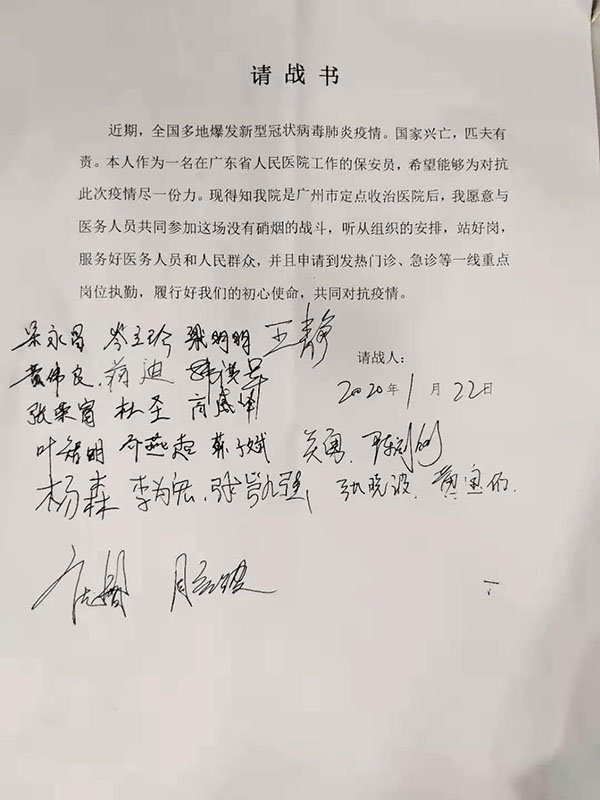 请战书
近期，全国多地爆发新型冠状病毒肺炎疫情。国家兴亡，匹夫有
责。本人作为一名在广东省人民医院工作的保安员，希望能够为对抗
此次疫情尽一份力。现得知我院是广州市定点收治医院后，我愿意与
医务人员共同参加这场没有硝烟的战斗，听从组织的安排，站好岗，
服务好医务人员和人民群众，并且申请到发热门诊、急诊等一线重点
岗位执勤，履行好我们的初心使命，共同对抗疫情。
梁永昌 岑玉珍 王静
请战人：
黄伟良 蒋迪
2020年1月22日
张荣富 杜圣
叶锦明 苏子斌 关勇
杨森 李为宏 张晓波